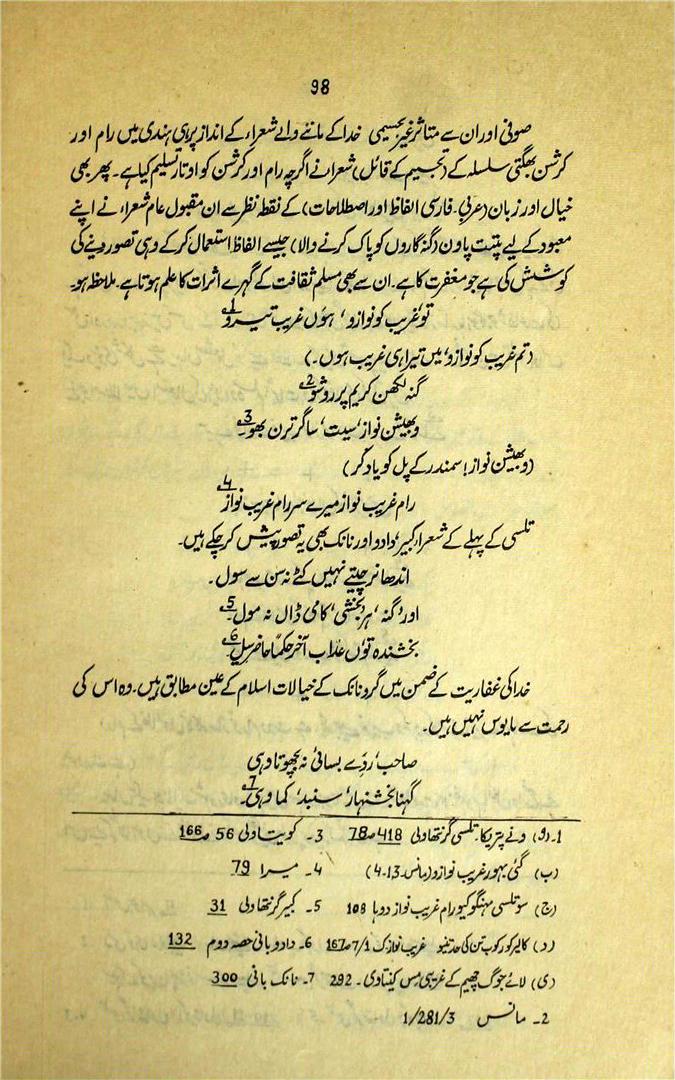 98
صوفی اور ان سے متاثر غیر تجسیمی خدا کے ماننے والے شعراء کے انداز پر ہی ہندی میں رام اور
کرشن بھگتی سلسلہ کے (تجسیم کے قائل) شعرا نے اگرچہ رام اور کرشن کو اوتار تسلیم کیا ہے۔ پھر بھی
خیال اور زبان (عربی۔ فارسی الفاظ اور اصطلاحات) کے نقطہ نظر سے ان مقبول عام شعراء نے اپنے
معبود کے لیے پتت پاون (گنہگاروں کو پاک کرنے والا) جیسے الفاظ استعمال کرکے وہی تصور دینے کی
کوشش کی ہے جو مغفرت کا ہے۔ ان سے بھی مسلم ثقافت کے گہرے اثرات کا علم ہوتا ہے۔ ملاحظہ ہو۔
تو غریب کو نوازو، ہوں غریب تیرو 1
(تم غریب کو نوازو، میں تیرا ہی غریب ہوں۔)
گنہ لکھن کریم پر روشو 2
وبھیشن نواز، سیت، ساگر ترن بھو۔ 3
(وبھیشن نواز! سمندر کے پل کو یاد کر)
رام غریب نواز میرے سر رام غریب نواز 4
تلسی کے پہلے کے شعراء کبیر، دادو اور نانک بھی یہ تصور پیش کر چکے ہیں۔
اندھا نر چیتے نہیں کٹے نہ سن سے سول۔
اور، گنہ، ہر بخشی، کامی ڈال نہ مول۔ 5
بخشندہ توں عذاب آخر حکما حاضر سیل۔ 6
خدا کی غفاریت کے ضمن میں گرو نانک کے خیالات اسلام کے عین مطابق ہیں۔ وہ اس کی
رحمت سے مایوس نہیں ہیں۔
صاحب، ردے بسائی نہ پچھوتا وہی
گہنا بخشنہار، سنبد، کما وہی۔ 7
1۔ (و) ونے پتریکا۔ تلسی گرنتھاولی 418 ص 78 3۔ کویتاولی 56 ص 166
(ب) گئی بہور غریب نوازو (مانس 13۔4) 4۔ میرا 79
(ج) سو تلسی مہنگو کیو رام غریب نواز دوہا 108 5۔ کبیر گرنتھاولی 31
(د) کالیر کور کوب تن کی حد تینو غریب نواز ک 7/1 ص 167 6۔ دادو بانی حصہ دوم 132
(ی) لائے جوگ چھیم کے غریبی مس کیتاوی۔ 292 7۔ نانک بانی 300
2۔ مانس 1/281/3